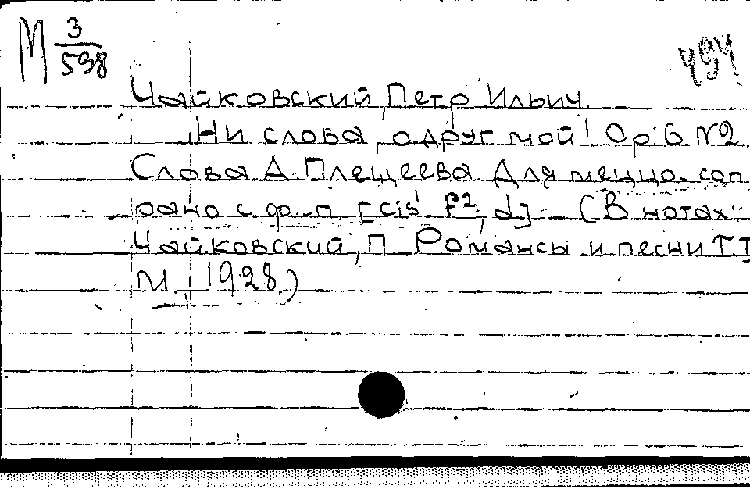 М 3/538
494
Чайковский, Петр Ильич.
Ни слова, о друг мой! Op. 6 N2
Слова А. Плещеева Для меццо-соп
рано с ф-п [cis' f², d]. (В нотах:
Чайковский, П. Романсы и песни Т I
М., 1928.)